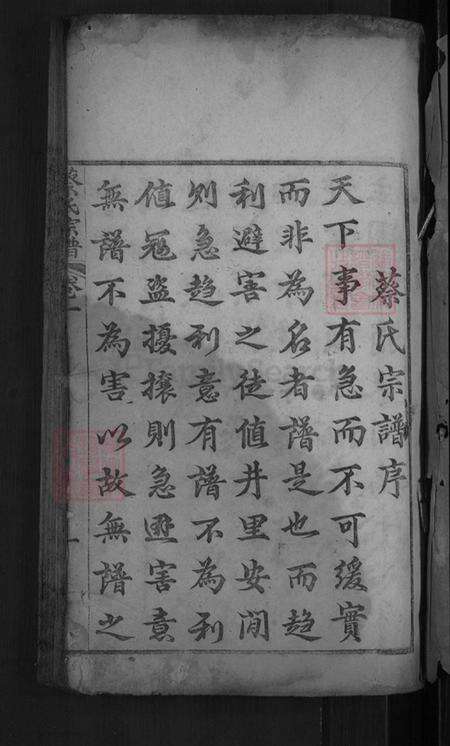 蔡氏宗譜序
天下事有急而不可緩實
而非為名者譜是也而趋
利避害之徒值井里安閒
则急趋利意有譜不為利
值冦盗擾攘則急避害意
無譜不為害以故無譜之
蔡氏宗譜 卷一
一